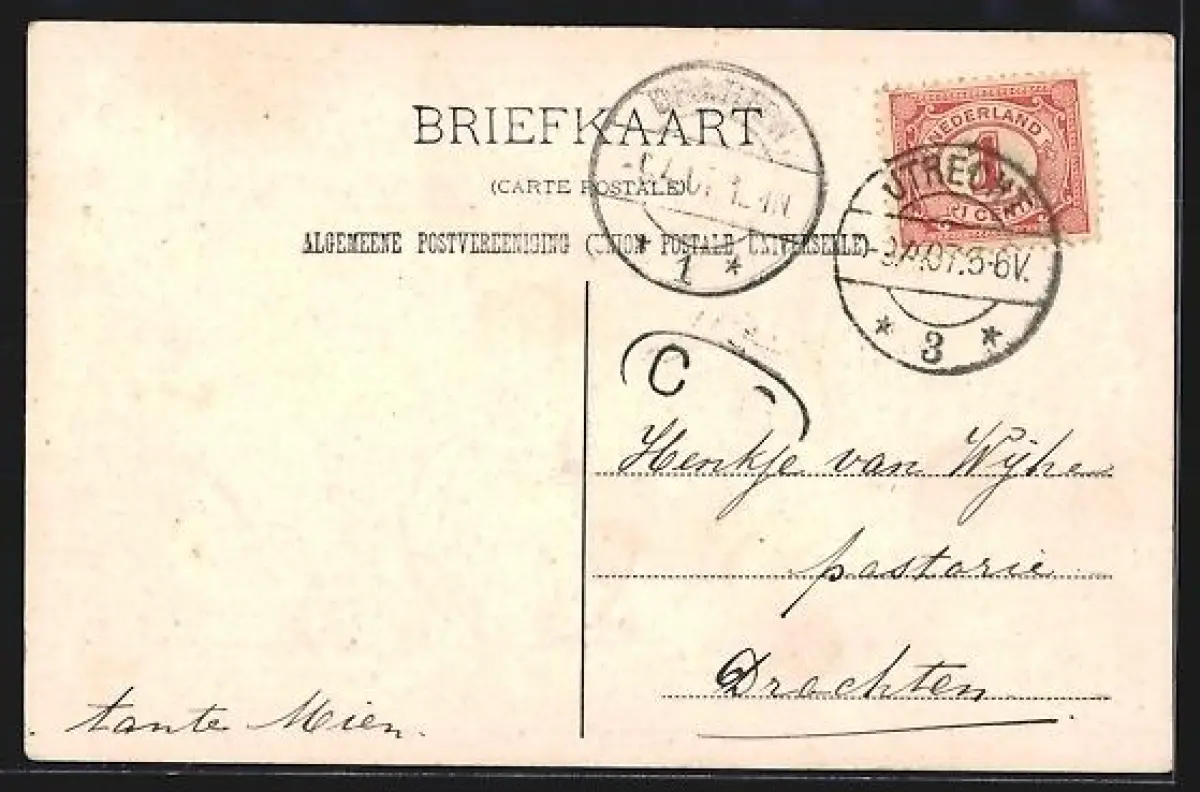 BRIEFKAART
(CARTE POSTALE)
ALGEMEENE POSTVEREENIGING (UNION POSTALE UNIVERSELLE)
NEDERLAND
1
CENT
DRACHTEN
1
UTRECHT
3
C
Henkje van Wijhe
pastorie
Drachten.
tante Mien.